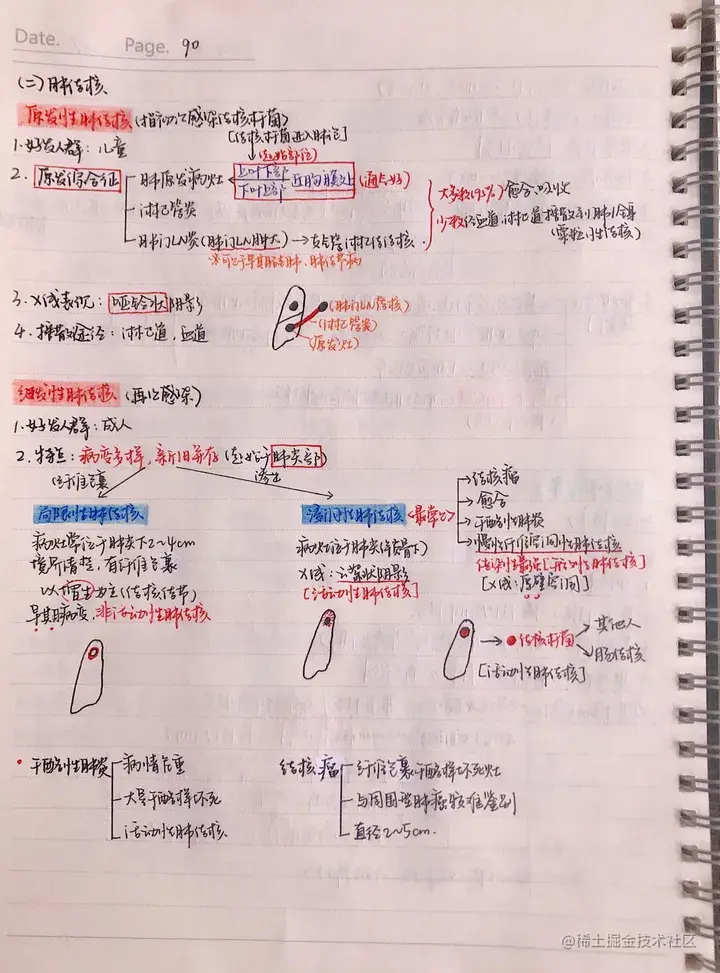 Date.
Page. 90
(二)肺结核
原发性肺结核(指初次感染结核杆菌)
[结核杆菌进入肺泡]
1.好发人群:儿童
(起始部位)
2. 原发综合征
肺原发病灶
上叶下部
下叶上部
近胸膜处
(通气好)
淋巴管炎
肺门LN炎(肺门LN肿大)→支气管淋巴结结核.
大多数(95%)愈合、吸收
少数经血道,淋巴道播散到肺/全身
3. X线表现:哑铃状阴影
4. 播散途径:淋巴道,血道
(肺门LN结核)
(淋巴管炎)
(原发灶)
继发性肺结核(再次感染)
1.好发人群:成人
2.特点:病变多样,新旧并存(起始于肺尖部)
纤维包裹
渗出
局限性肺结核
病灶常位于肺尖下2~4cm
境界清楚,有纤维包裹
以增生为主(结核结节)
早期病变,非活动性肺结核
浸润性肺结核<最常见>
病灶位于肺尖(锁骨下)
X线:云絮状阴影
[活动性肺结核]
结核瘤
愈合
干酪性肺炎
慢性纤维空洞性肺结核
[X线:厚壁空洞]
结核杆菌
其他人
肠结核
[活动性肺结核]
干酪性肺炎
病情危重
大量干酪样坏死
活动性肺结核
结核瘤
纤维包裹干酪样坏死灶
与周围型肺癌较难鉴别
直径2~5cm.
@稀土掘金技术社区